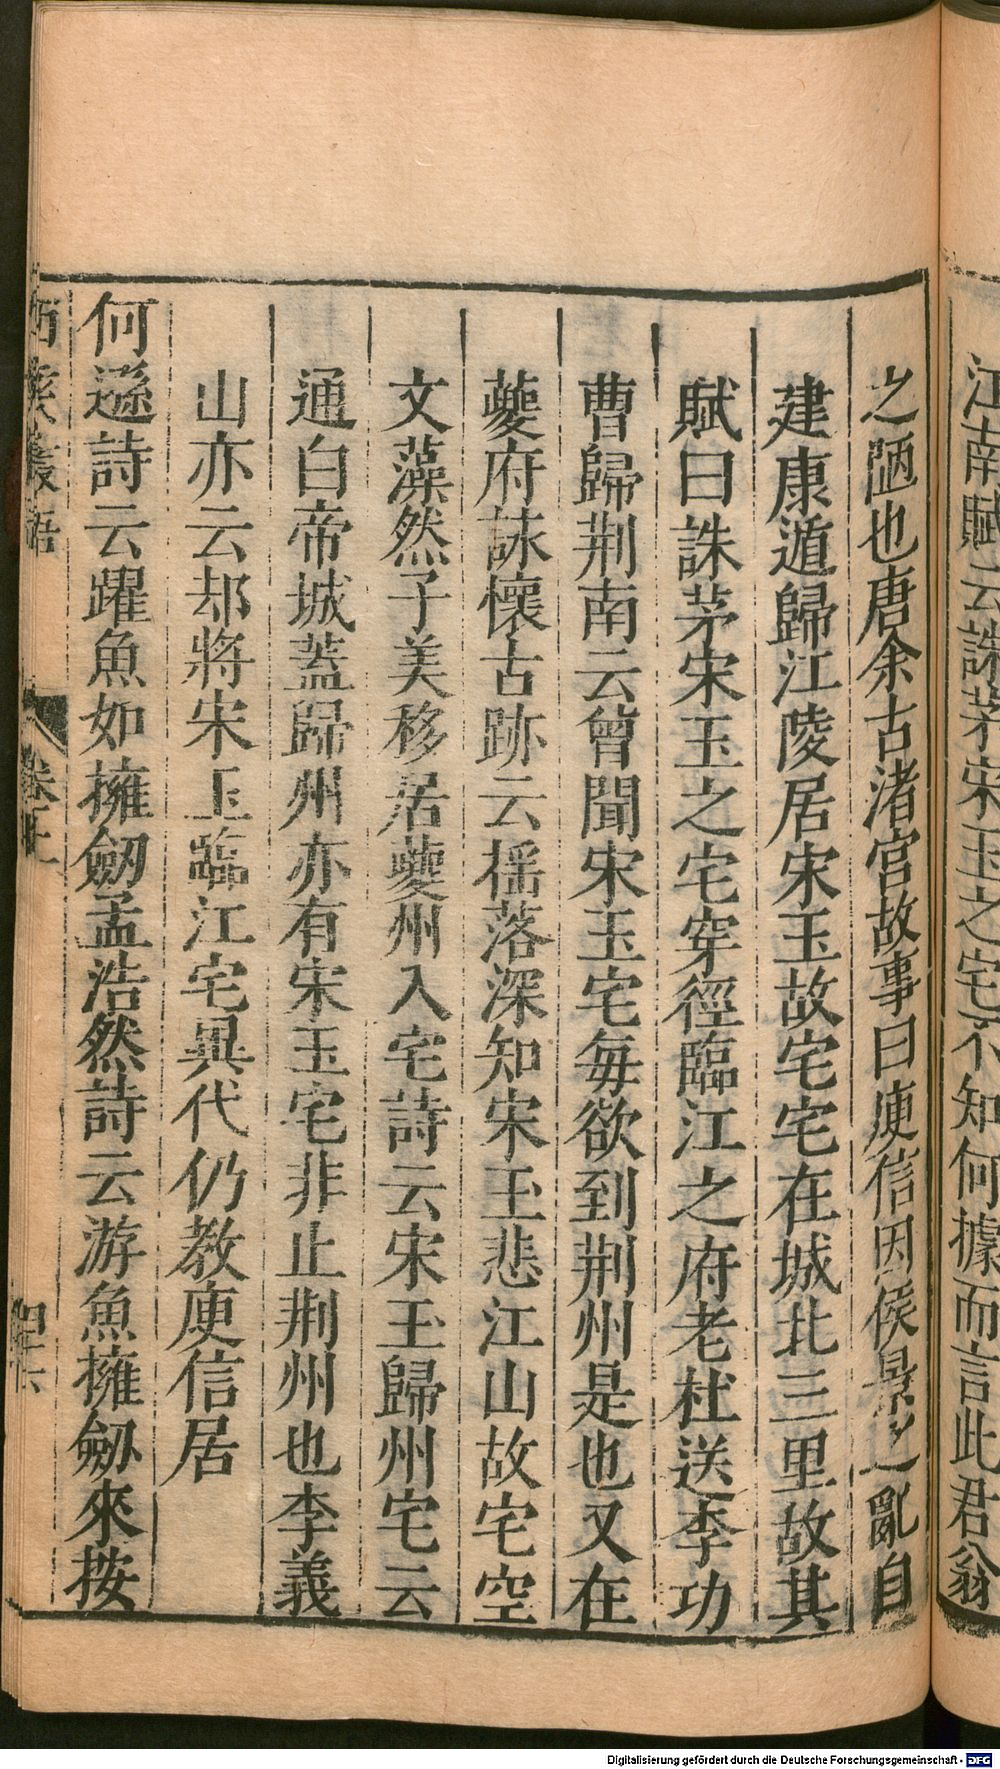 江南賦云誅茅宋玉之宅不知何據而言此君翁
之陋也唐余古渚宮故事曰庾信因侯景之亂自
建康遁歸江陵居宋玉故宅宅在城北三里故其
賦曰誅茅宋玉之宅穿徑臨江之府老杜送李功
曹歸荆南云曾聞宋玉宅每欲到荆州是也又在
夔府詠懷古跡云揺落深知宋玉悲江山故宅空
文藻然子美移居夔州入宅詩云宋玉歸州宅云
通白帝城蓋歸州亦有宋玉宅非止荆州也李義
山亦云却將宋玉臨江宅異代仍教庾信居
何遜詩云躍魚如擁劒孟浩然詩云游魚擁劒來按
西溪叢語 卷上 四十六
Digitalisierung gefördert durch die Deutsche Forschungsgemeinschaft - DFG